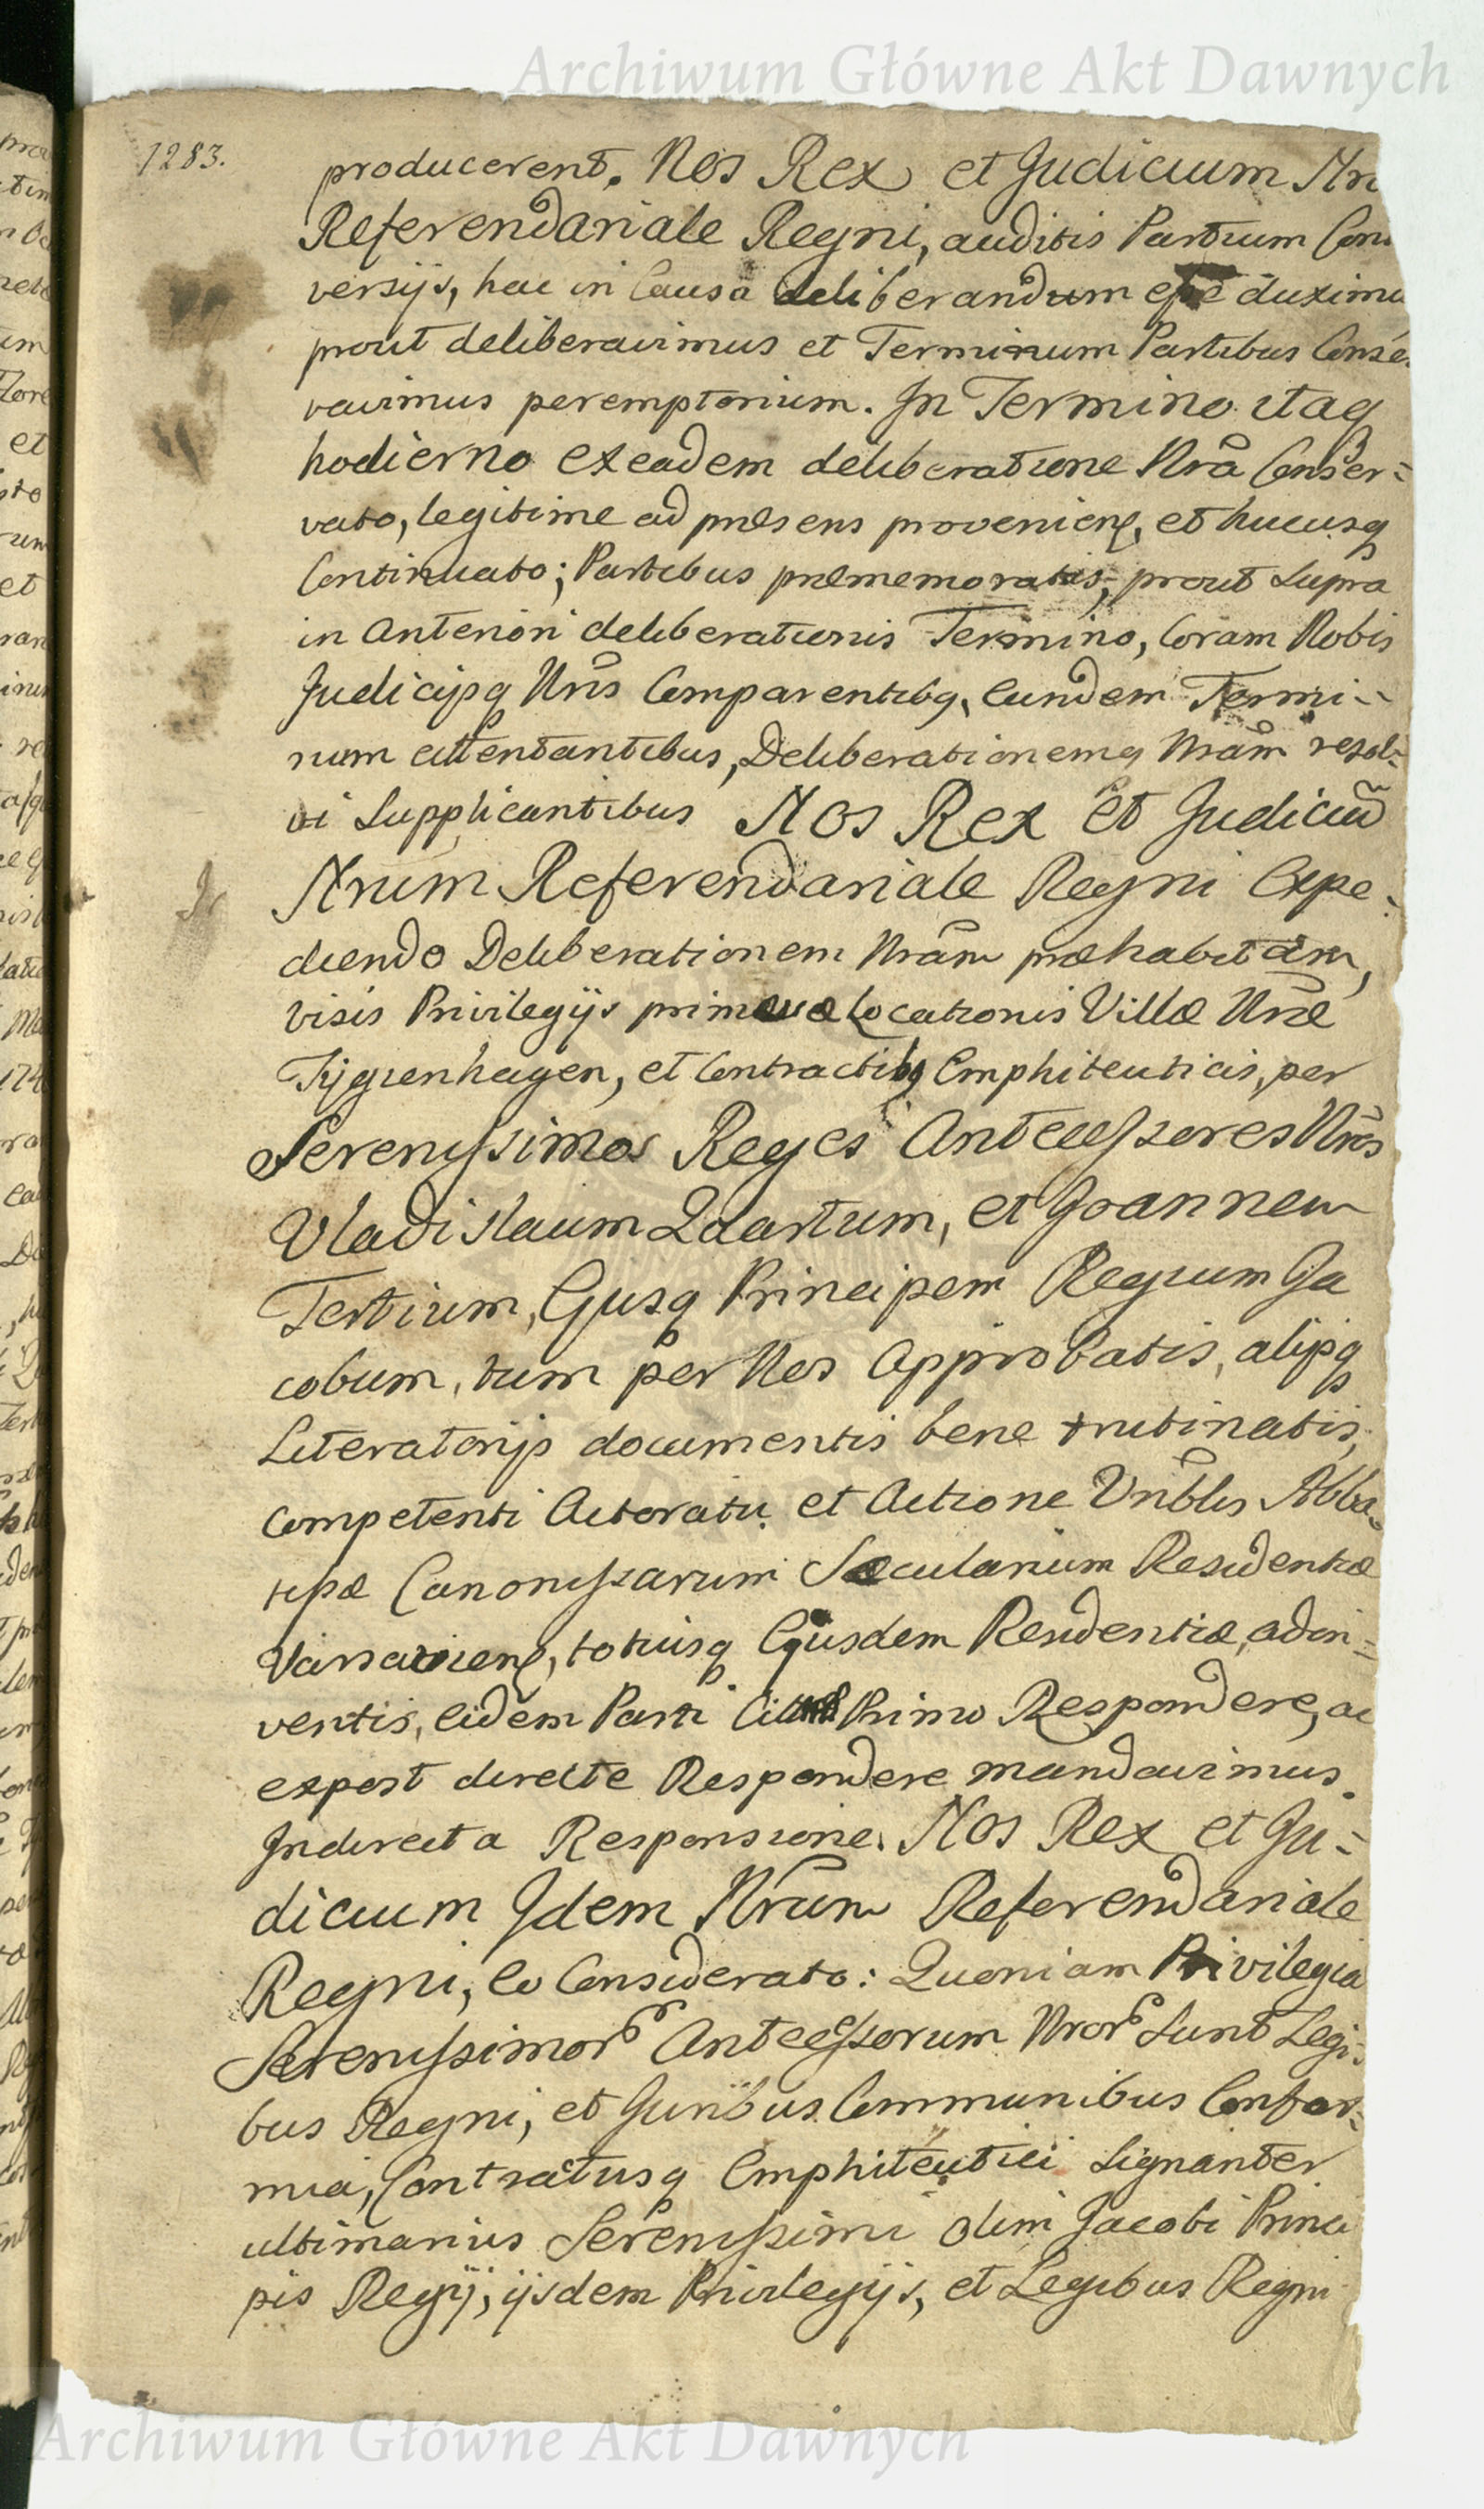 Archiwum Główne Akt Dawnych
1283.
producerent. Nos Rex et Judicium Nr
Referendariale Regni, auditis Partium Con
versijs, hac in Causa deliberandum esse duximu
prout deliberavimus et Terminum Partibus Conse
vavimus peremptorium. In Termino itaq
hodierno ex eadem deliberatione Nrã Conser=
vato, legitime ad præsens provenien, et hucusq
Continuato; Partibus præmemoratis, prout Supra
in Anteriori deliberationis Termino, Coram Nobis
Judicijsq Nris Comparentibq, Eundem Termi=
num attentantibus, Deliberationemq Nram resol=
vi Supplicantibus Nos Rex et Judiciũ
Nrum Referendariale Regni Expe=
diendo Deliberationem Nram præhabitam,
visis Privilegijs primævæ Locationis Villæ Nræ
Tygienhagen, et Contractibq Emphiteuticis, per
Serenissimos Reges Antecessores Nros
Vladislaum Quartum, et Joannem
Tertium, Ejusq Principem Regium Ja
cobum, tum per Nos Approbatis, alijsq
Literatorijs documentis bene trutinatis,
Competenti Actoratu et Actione Vnblis Abba=
tissæ Canonissarum Sæcularium Residentiæ
Varsavien, totiusq Ejusdem Residentiæ, adin=
ventis, Eidem Parti Primo Respondere, ac
expost directe Respondere mandavimus.
Indirecta Responsione. Nos Rex et Ju=
dicium Idem Nrum Referendariale
Regni, Eo Considerato: Quoniam Privilegia
Serenissimor Antecessorum Nror Sunt Legi=
bus Regni, et Juribus Communibus Confor=
mia, Contractusq Emphiteutici Signanter
ultimarius Serenissimi olim Jacobi Princi
pis Regij, ijsdem Privilegijs, et Legibus Regni
Archiwum Główne Akt Dawnych